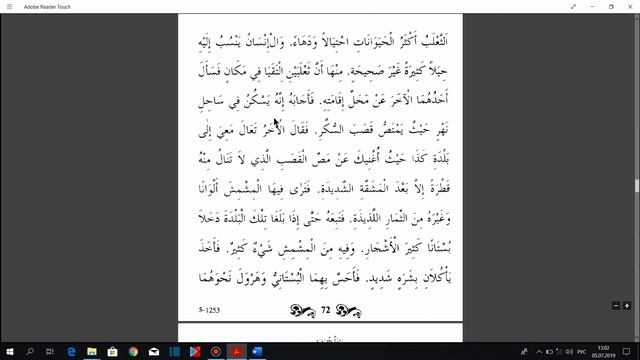 Adobe Reader Touch
اَلثَّعْلَبُ أَكْثَرُ الْحَيَوَانَاتِ احْتِيَالاً وَدَهَاءً. وَالْإِنْسَانُ يَنْسُبُ إِلَيْهِ
حِيَلاً كَثِيرَةً غَيْرَ صَحِيحَةٍ. مِنْهَا أَنَّ ثَعْلَبَيْنِ الْتَقَيَا فِي مَكَانٍ فَسَأَلَ
أَحَدُهُمَا الْآخَرَ عَنْ مَحَلِّ إِقَامَتِهِ. فَأَجَابَهُ إِنَّهُ يَسْكُنُ فِي سَاحِلِ
نَهْرٍ حَيْثُ يَمْتَصُّ قَصَبَ السُّكَّرِ. فَقَالَ الْآخَرُ تَعَالَ مَعِيَ إِلَى
بَلْدَةِ كَذَا حَيْثُ أُغْنِيكَ عَنْ مَصِّ الْقَصَبِ الَّذِي لاَ تَنَالُ مِنْهُ
قَطْرَةً إِلاَّ بَعْدَ الْمَشَقَّةِ الشَّدِيدَةِ. فَتَرَى فِيهَا الْمِشْمِشَ أَلْوَانًا
وَغَيْرَهُ مِنَ الثِّمَارِ اللَّذِيذَةِ. فَتَبِعَهُ حَتَّى إِذَا بَلَغَا تِلْكَ الْبَلْدَةَ دَخَلاَ
بُسْتَانًا كَثِيرَ الْأَشْجَارِ. وَفِيهِ مِنَ الْمِشْمِشِ شَيْءٌ كَثِيرٌ. فَأَخَذَ
يَأْكُلاَنِ بِشَرَهٍ شَدِيدٍ. فَأَحَسَّ بِهِمَا الْبُسْتَانِيُّ وَهَرْوَلَ نَحْوَهُمَا
5-1253
72
РУС
13:02
05.07.2019